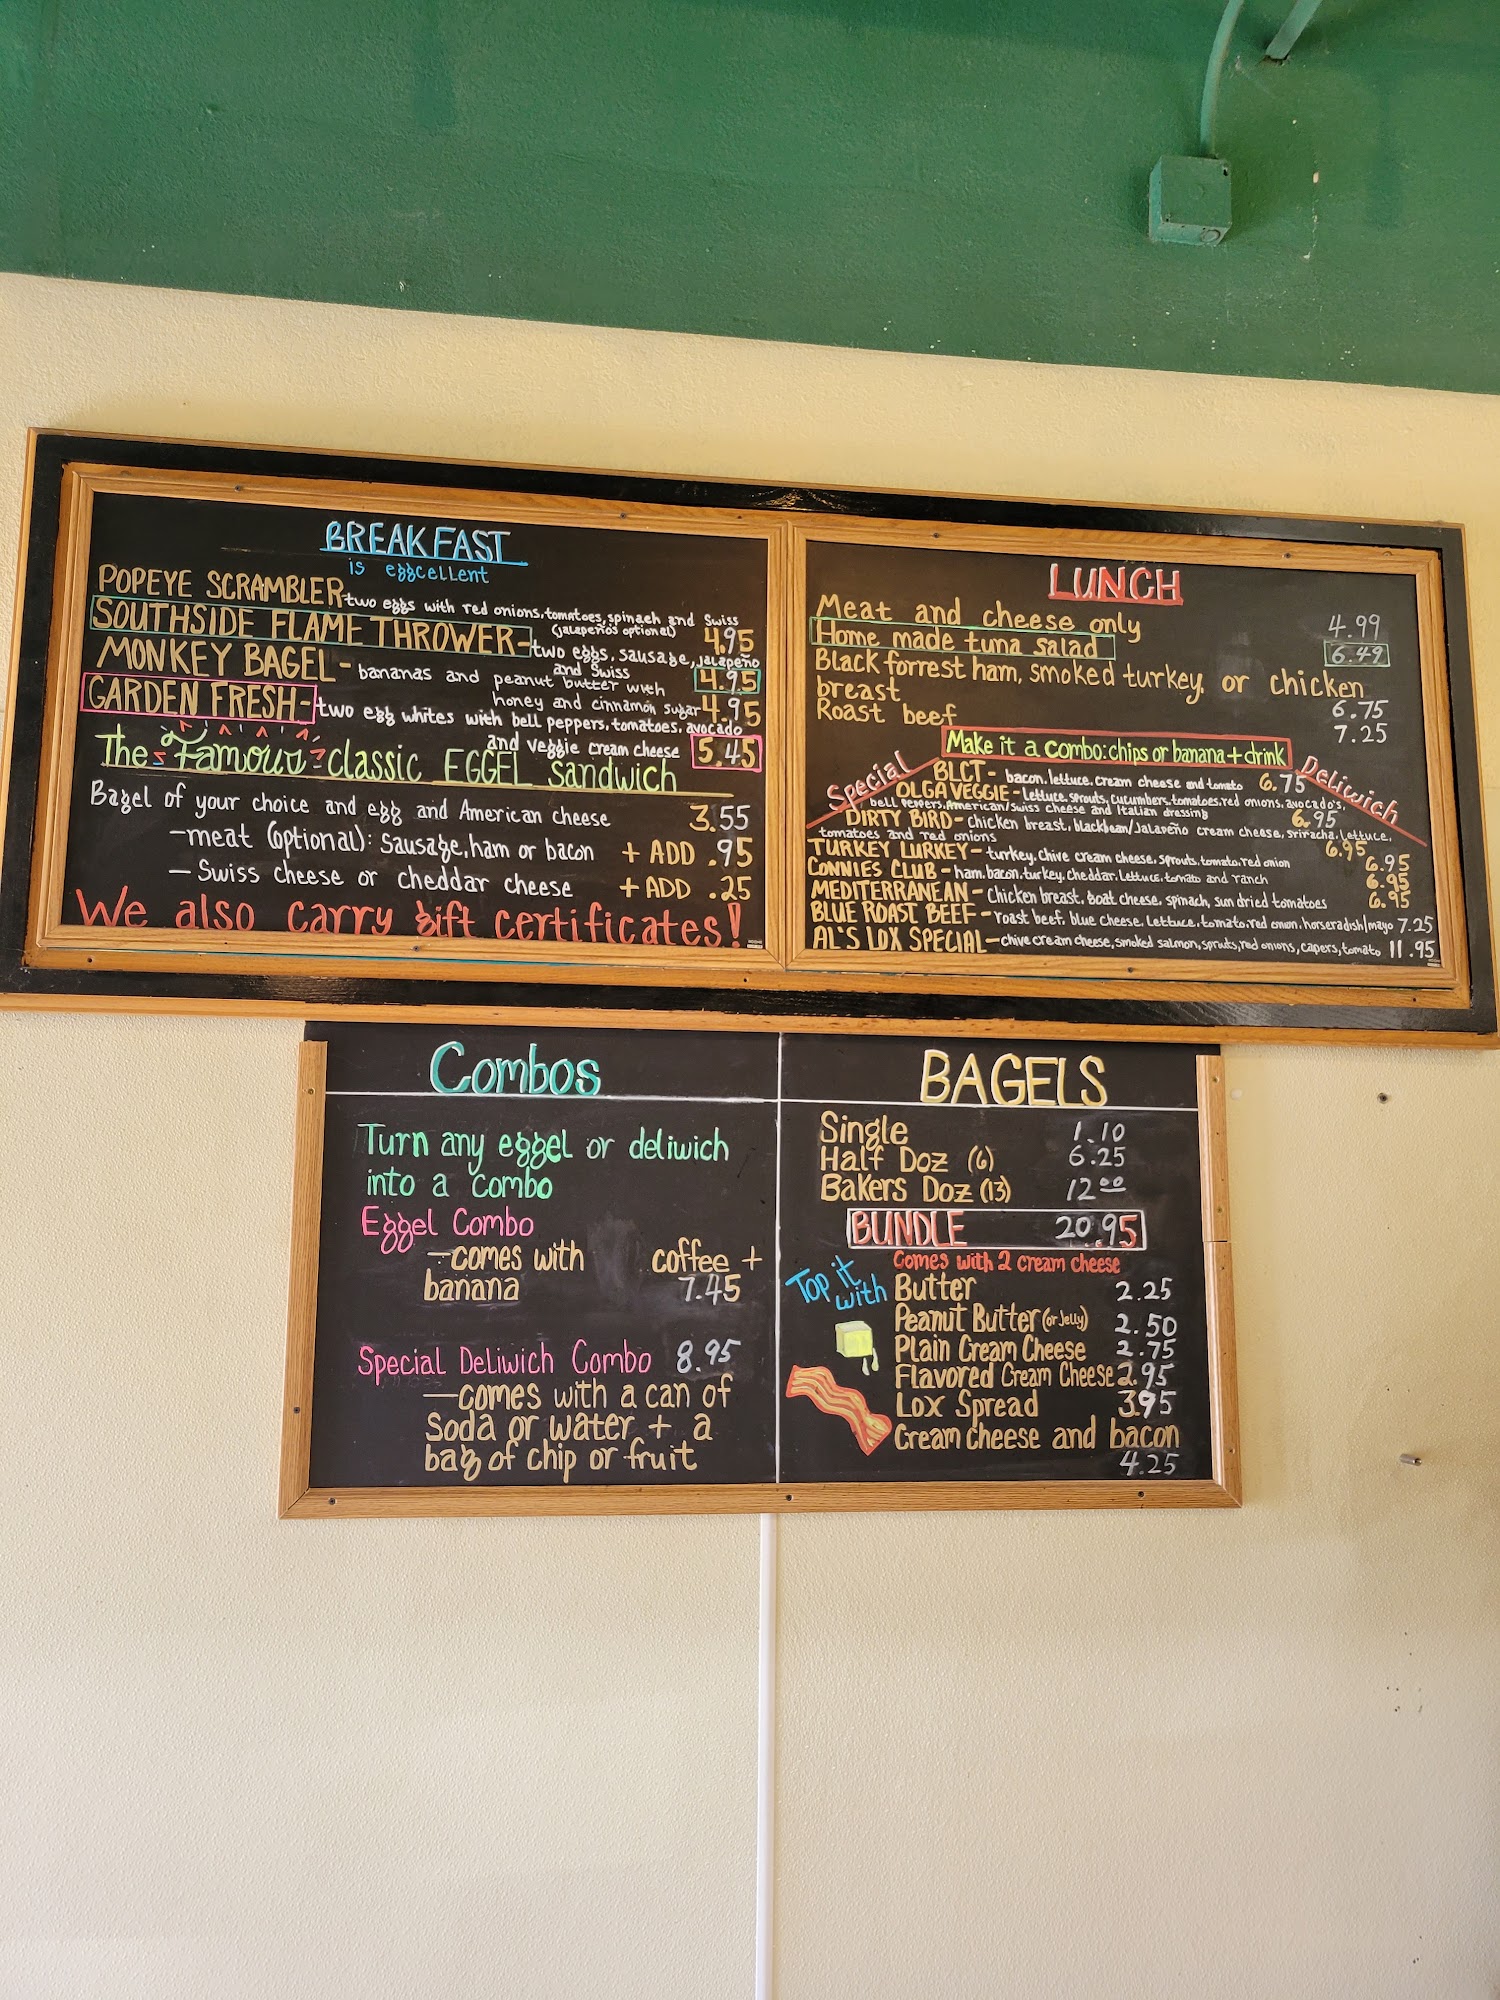 BREAKFAST
is eggcellent
POPEYE SCRAMBLER - two eggs with red onions, tomatoes, spinach and Swiss
(jalapeños optional) 4.95
SOUTHSIDE FLAME THROWER - two eggs, sausage, jalapeño
and Swiss 4.95
MONKEY BAGEL - bananas and peanut butter with
honey and cinnamon sugar 4.95
GARDEN FRESH - two egg whites with bell peppers, tomatoes, avocado
and veggie cream cheese 5.45
The Famous classic EGGEL Sandwich
Bagel of your choice and egg and American cheese 3.55
- meat (optional): Sausage, ham or bacon + ADD .95
- Swiss cheese or cheddar cheese + ADD .25
We also carry gift certificates!
LUNCH
Meat and cheese only 4.99
Home made tuna salad 6.49
Black forrest ham, smoked turkey, or chicken
breast 6.75
Roast beef 7.25
Make it a combo: chips or banana + drink
Special Deliwich
BLCT - bacon, lettuce, cream cheese and tomato 6.75
OLGA VEGGIE - Lettuce, sprouts, cucumbers, tomatoes, red onions, avocado's,
bell peppers, American/swiss cheese and Italian dressing 6.95
DIRTY BIRD - chicken breast, blackbean/jalapeño cream cheese, sriracha, lettuce,
tomatoes and red onions 6.95
TURKEY LURKEY - turkey, chive cream cheese, sprouts, tomato, red onion 6.95
CONNIES CLUB - ham, bacon, turkey, cheddar, lettuce, tomato and ranch 6.95
MEDITERRANEAN - Chicken breast, goat cheese, spinach, sun dried tomatoes 6.95
BLUE ROAST BEEF - roast beef, blue cheese, lettuce, tomato, red onion, horseradish/mayo 7.25
AL'S LOX SPECIAL - chive cream cheese, smoked salmon, spruts, red onions, capers, tomato 11.95
Combos
Turn any eggel or deliwich
into a combo
Eggel Combo
- comes with coffee +
banana 7.45
Special Deliwich Combo 8.95
- comes with a can of
Soda or water + a
bag of chip or fruit
BAGELS
Single 1.10
Half Doz (6) 6.25
Bakers Doz (13) 12.00
BUNDLE 20.95
Comes with 2 cream cheese
Top it with
Butter 2.25
Peanut Butter (or Jelly) 2.50
Plain Cream Cheese 2.75
Flavored Cream Cheese 2.95
Lox Spread 3.95
Cream cheese and bacon
4.25